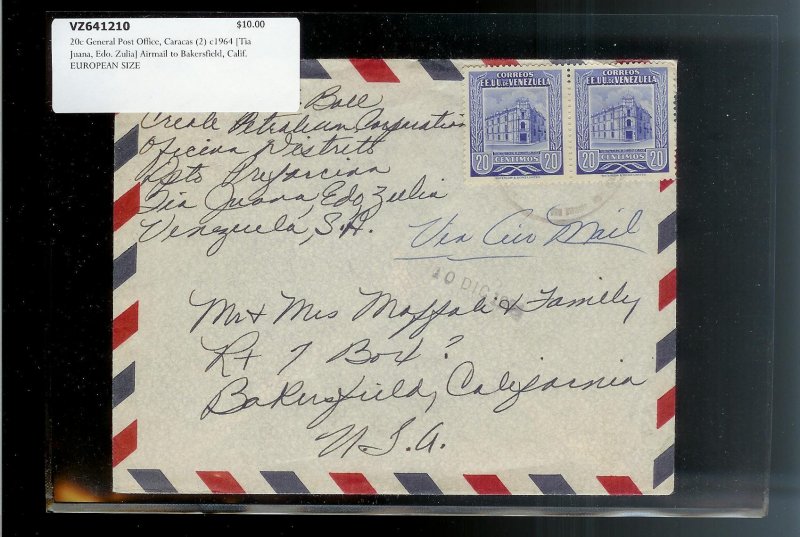 VZ641210 $10.00
20c General Post Office, Caracas (2) c1964 [Tia
Juana, Edo. Zulia] Airmail to Bakersfield, Calif.
EUROPEAN SIZE
Ball
Creole Petroleum Corporation
Oficina Distrett
Tia Juana, Edo, Zulia
Venezuela, S.A.
CORREOS
EE.UU. DE VENEZUELA
20 CENTIMOS 20
CORREOS
EE.UU. DE VENEZUELA
20 CENTIMOS 20
Via Air Mail
10 DIC
Mr & Mrs & Family
Rt 7 Box ?
Bakersfield, California
U.S.A.